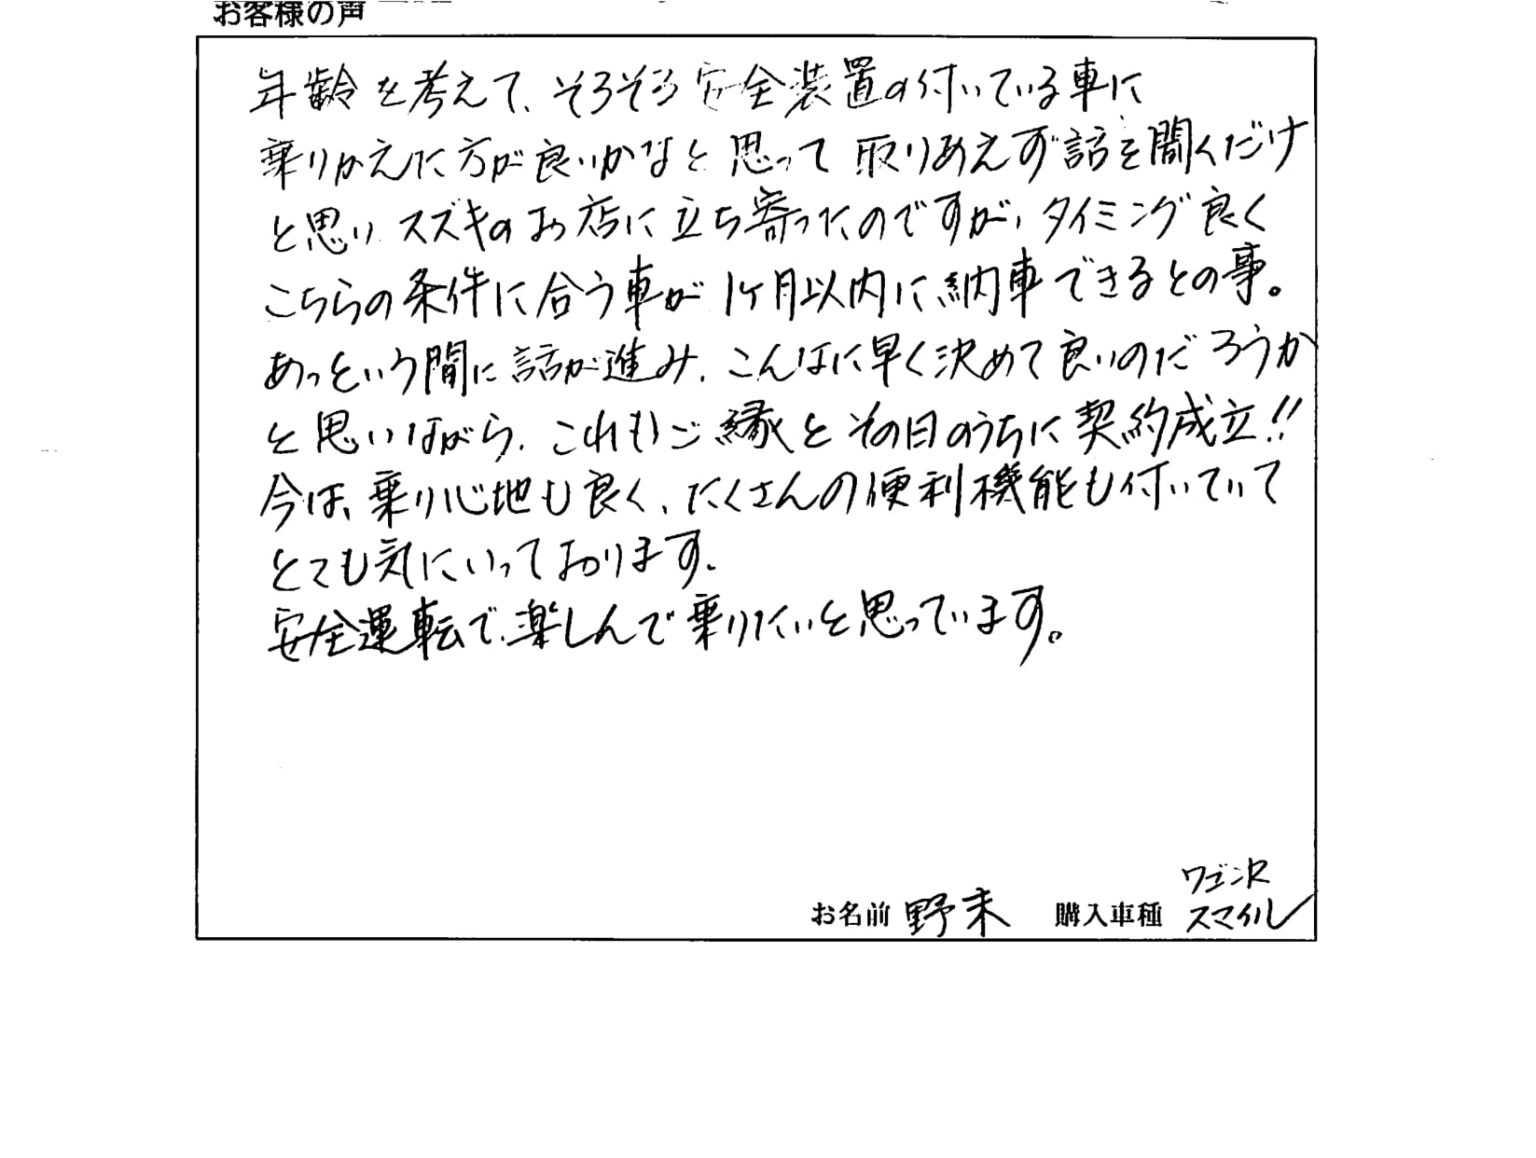 お客様の声
年齢を考えて、そろそろ安全装置の付いている車に
乗りかえた方が良いかなと思って取りあえず話を聞くだけ
と思い、スズキのお店に立ち寄ったのですが、タイミング良く
こちらの条件に合う車が1ヶ月以内に納車できるとの事。
あっという間に話が進み、こんなに早く決めて良いのだろうか
と思いながら、これもご縁とその日のうちに契約成立!!
今は、乗り心地も良く、たくさんの便利機能も付いていて
とても気にいっております。
安全運転で、楽しんで乗りたいと思っています。
お名前 野末 購入車種 ワゴンR
スマイル